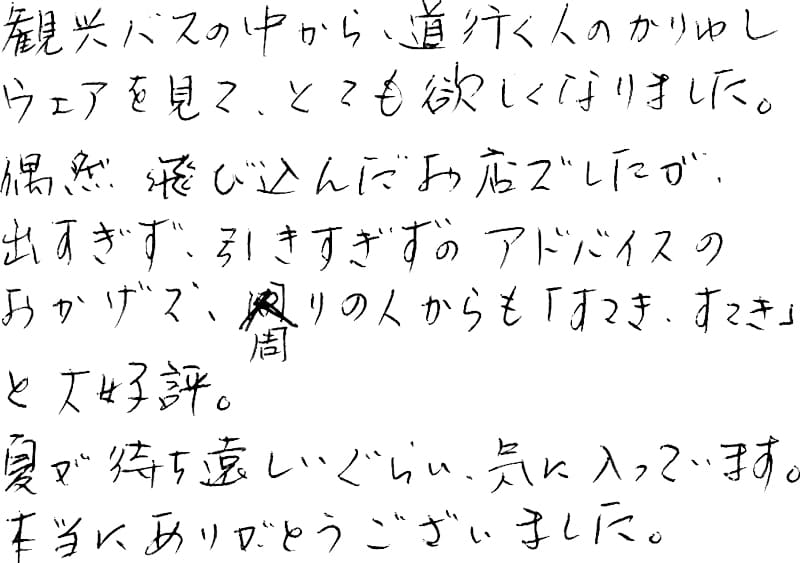 観光バスの中から、道行く人のかりゆし
ウェアを見て、とても欲しくなりました。
偶然飛び込んだお店でしたが、
出すぎず、引きすぎずのアドバイスの
おかげで、周りの人からも「すてき、すてき」
と大好評。
夏が待ち遠しいぐらい、気に入っています。
本当にありがとうございました。